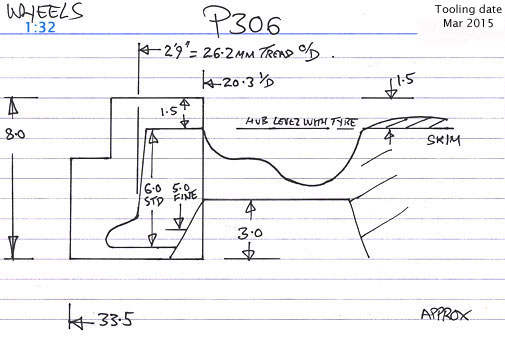 WHEELS
1:32
P306
Tooling date
Mar 2015
2'9" = 26.2MM TREAD O/D.
20.3 I/D
1.5
1.5
HUB LEVEL WITH TYRE
SKIM
8.0
6.0
STD
5.0
FINE
3.0
33.5
APPROX